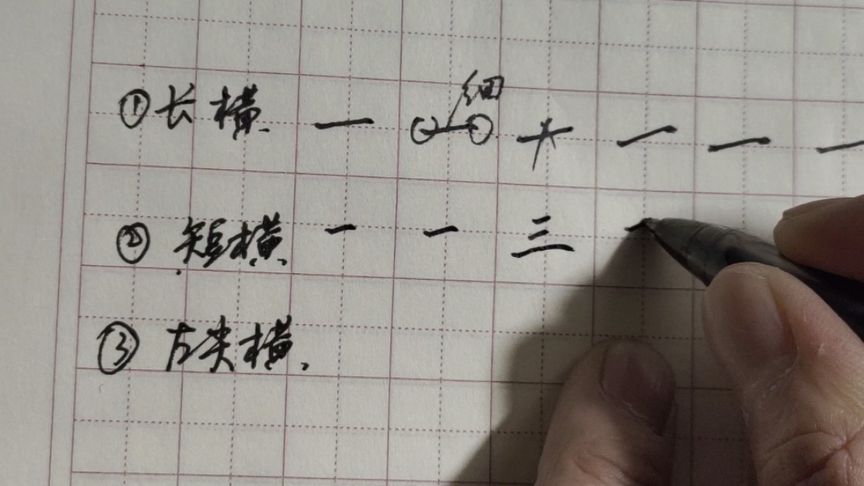 细
①长横 一 一 十 一 一 一
②短横 一 一 三 一
③左尖横